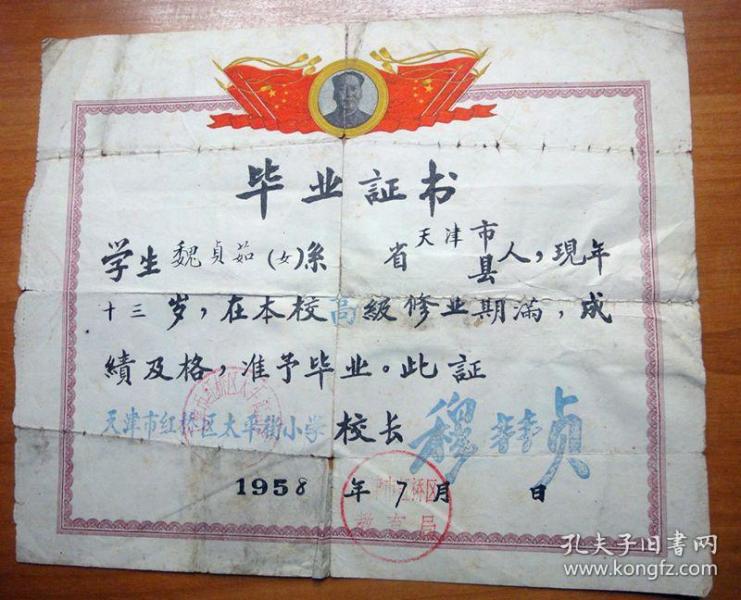 毕业証书
学生魏貞茹(女)系 省天津市县人，現年
十三岁，在本校高級修业期滿，成
績及格，准予毕业。此証
天津市红桥区太平街小学 校长 穆
1958年7月 日
市红桥区
教育局
孔夫子旧书网
www.kongfz.com